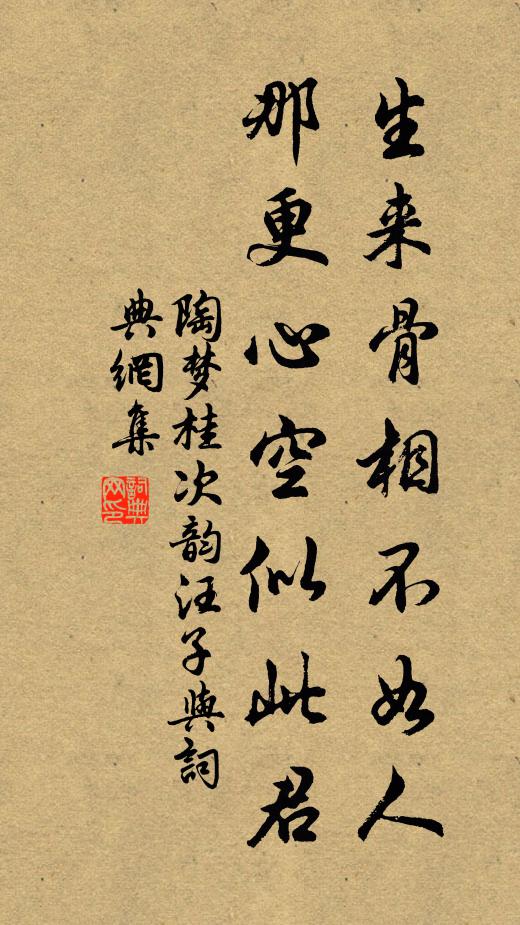 生来骨相不如人
那更心空似此君
陶梦桂次韵汪子與詞
典網集
詞典网印